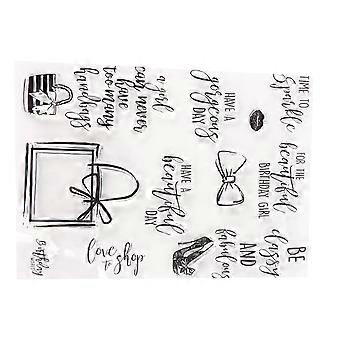 TIME TO
Sparkle
FOR THE
beautiful
BIRTHDAY GIRL
BE
classy
AND
fabulous
HAVE A
gorgeous
DAY
HAVE A
beautiful
DAY
a girl
can never
have
too many
handbags
love
to shop
Birthday